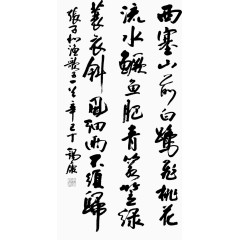 西塞山前白鹭飞桃花
流水鳜鱼肥青箬笠绿
蓑衣斜风细雨不须归
张子和渔歌子一首辛巳丁